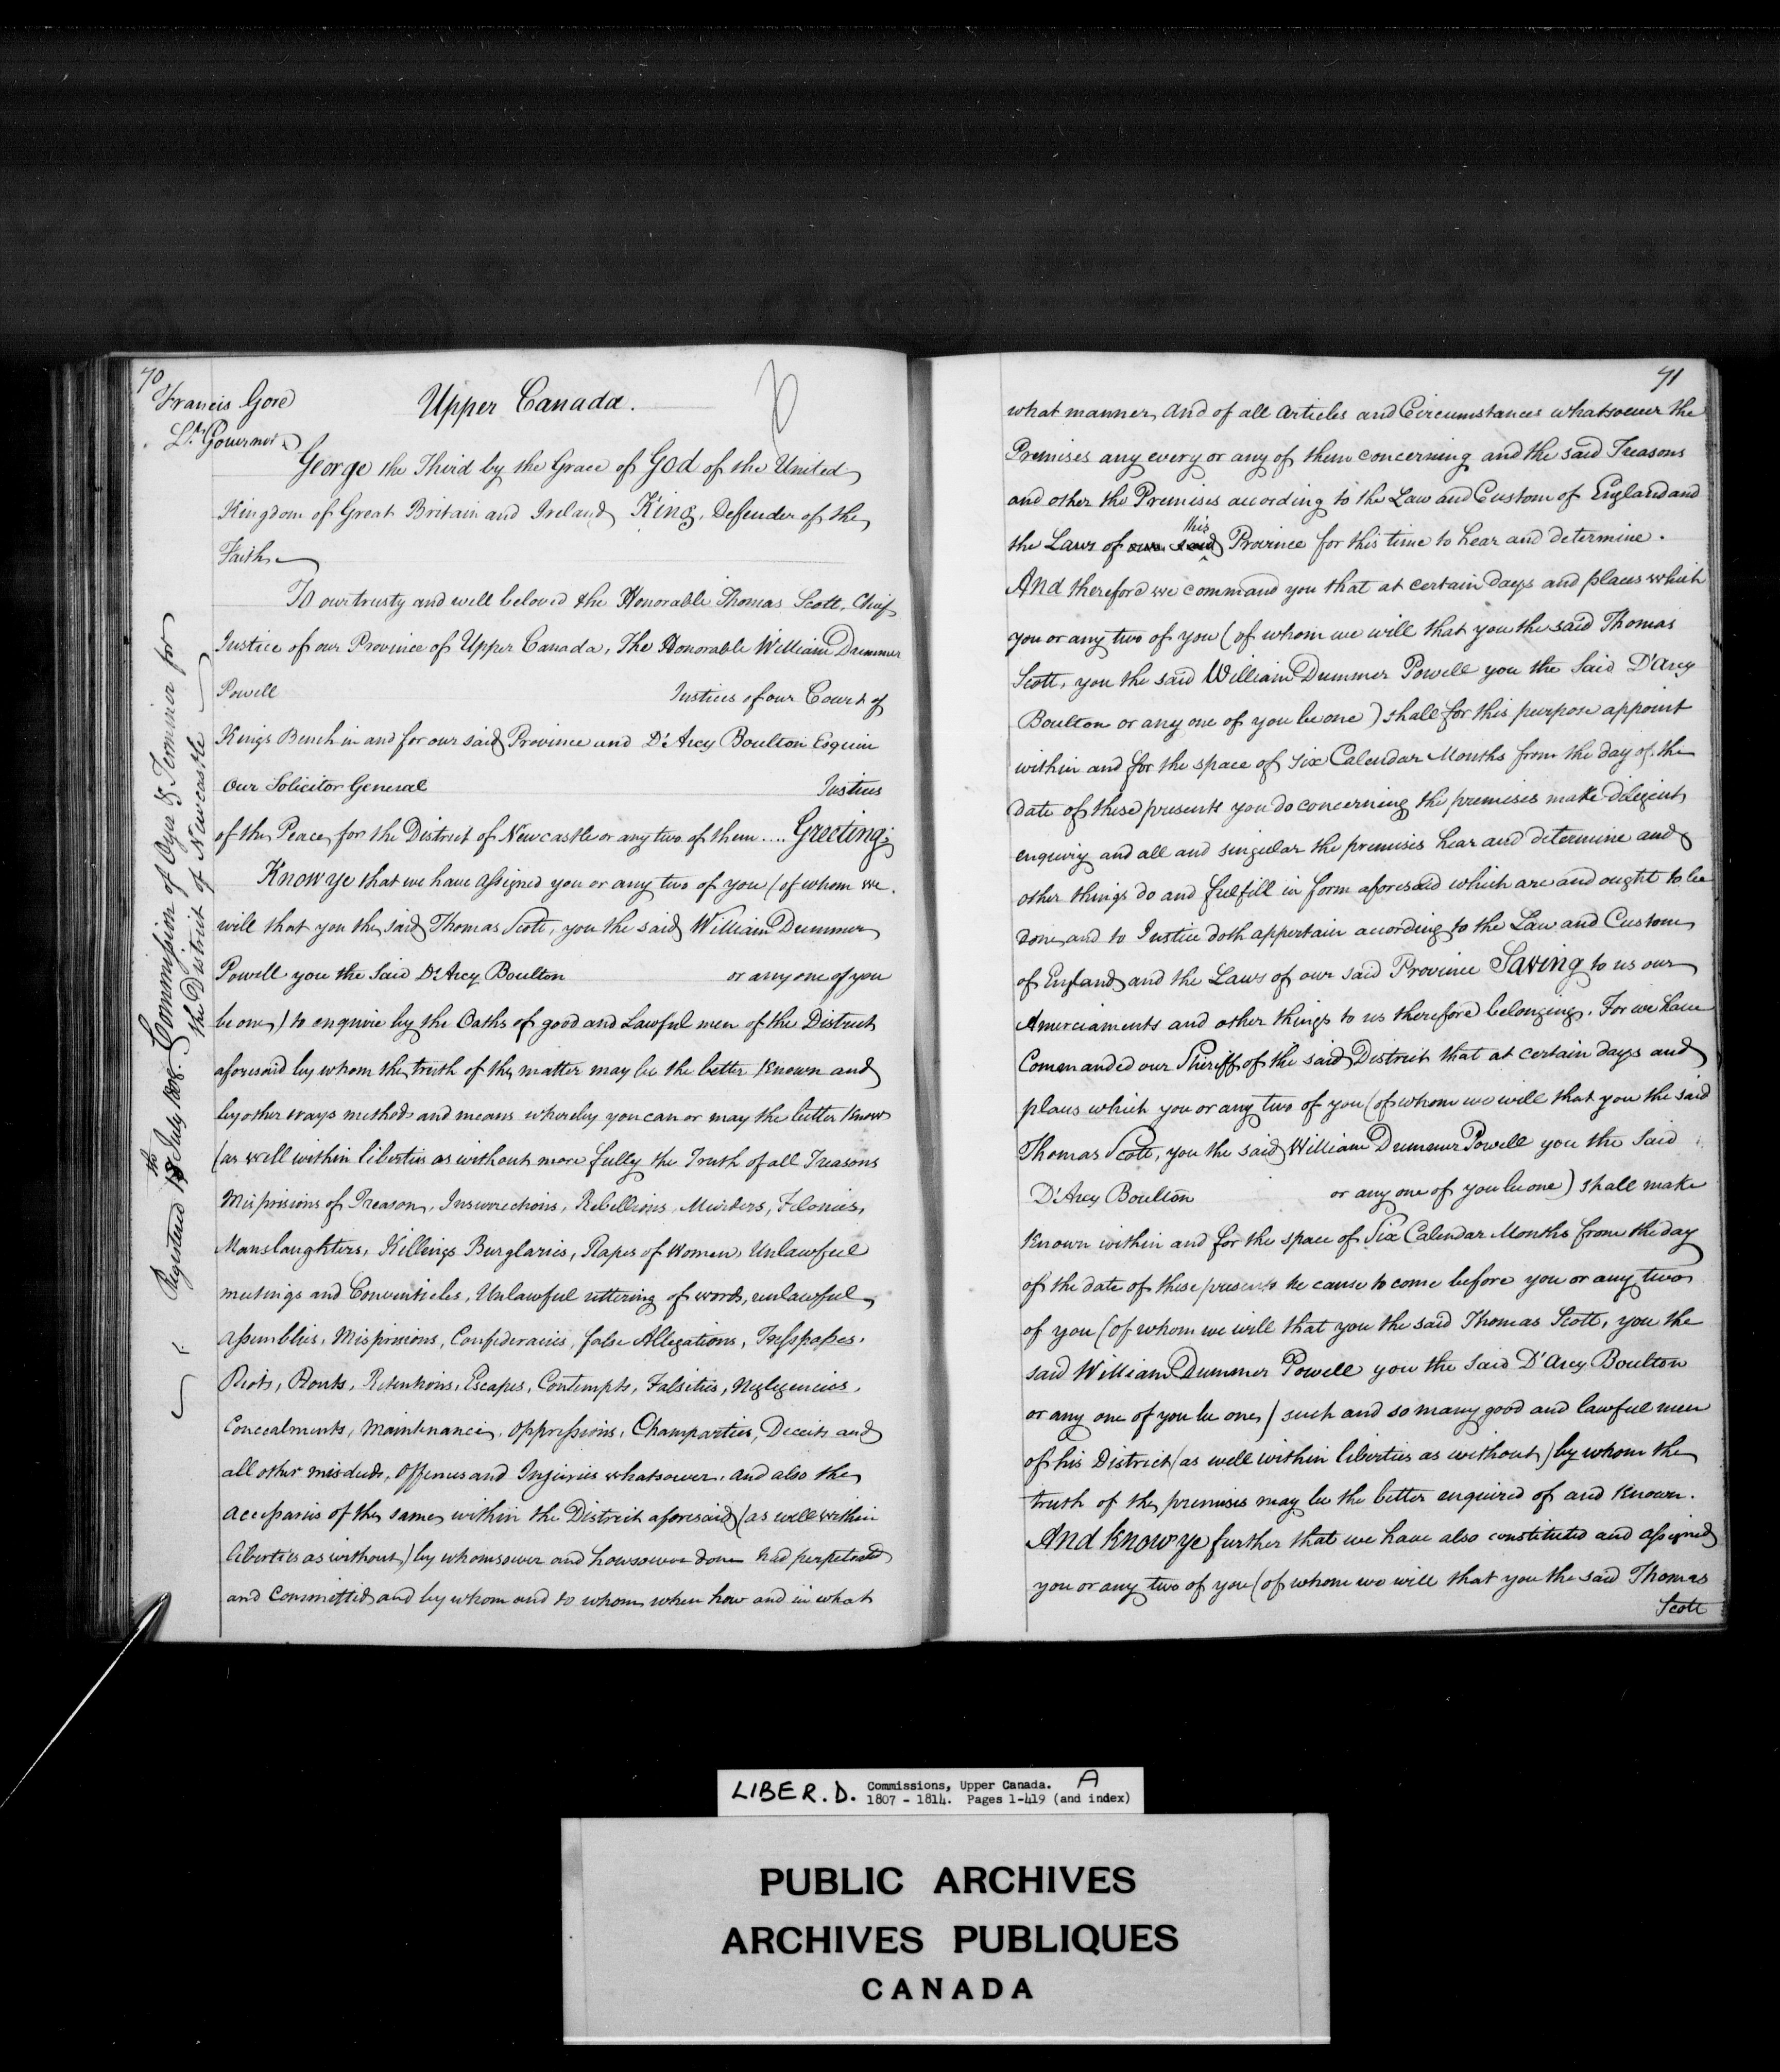 70
Francis Gore
Lt. Governor
Upper Canada.
George the Third by the Grace of God of the United
Kingdom of Great Britain and Ireland King, Defender of the
Faith
To our trusty and well beloved the Honorable Thomas Scott, Chief
Justice of our Province of Upper Canada, The Honorable William Dummer
Powell Justices of our Court of
Kings Bench in and for our said Province and D'Arcy Boulton Esquire
our Solicitor General Justices
of the Peace for the District of Newcastle or any two of them .... Greeting:
Know ye that we have assigned you or any two of you (of whom we
will that you the said Thomas Scott, you the said William Dummer
Powell you the said D'Arcy Boulton or any one of you
be one) to enquire by the Oaths of good and Lawful men of the District
aforesaid by whom the truth of the matter may be the better Known and
by other ways methods and means whereby you can or may the better Know
(as well within liberties as without more fully the Truth of all Treasons
Misprisions of Treason, Insurrections, Rebellions, Murders, Felonies,
Manslaughters, Killings Burglaries, Rapes of Women Unlawful
meetings and Conventicles, Unlawful uttering of words, unlawful
assemblies, Misprisions, Confederacies, false Allegations, Trespasses,
Riots, Routs, Retentions, Escapes, Contempts, Falsities, Negligencies,
Concealments, Maintenances, Oppressions, Champarties, Deceits and
all other misdeeds, Offences and Injuries whatsoever, and also the
accessaries of the same within the District aforesaid (as well within
liberties as without) by whomsoever and howsoever done had perpetrated
and Committed and by whom and to whom when how and in what
Registered 18th July 1808. Commission of Oyer & Terminer for
the District of Newcastle
71
what manner, And of all Articles and Circumstances whatsoever the
Premises any every or any of them concerning and the said Treasons
and other the Premises according to the Law and Custom of England and
the Laws of our said this Province for this time to hear and determine.
And therefore we command you that at certain days and places which
you or any two of you (of whom we will that you the said Thomas
Scott, you the said William Dummer Powell you the Said D'Arcy
Boulton or any one of you be one) shall for this purpose appoint
within and for the space of six Calendar Months from the day of the
date of these presents you do concerning the premises make diligent
enquiry and all and singular the premises hear and determine and
other things do and fulfill in form aforesaid which are and ought to be
done, and to Justice doth appertain according to the Law and Custom
of England and the Laws of our said Province Saving to us our
Amerciaments and other things to us therefore belonging. For we have
Commanded our Sheriff of the said District that at certain days and
places which you or any two of you (of whom we will that you the said
Thomas Scott, you the said William Dummer Powell you the Said
D'Arcy Boulton or any one of you be one) shall make
Known within and for the space of Six Calendar Months from the day
of the date of these presents he cause to come before you or any two
of you (of whom we will that you the said Thomas Scott, you the
said William Dummer Powell you the Said D'Arcy Boulton
or any one of you be one) such and so many good and lawful men
of his District (as well within liberties as without) by whom the
truth of the premises may be the better enquired of and Known.
And know ye further that we have also constituted and assigned
you or any two of you (of whom we will that you the said Thomas
Scott
LIBER. D. Commissions, Upper Canada. A
1807 - 1814. Pages 1-419 (and index)
PUBLIC ARCHIVES
ARCHIVES PUBLIQUES
CANADA